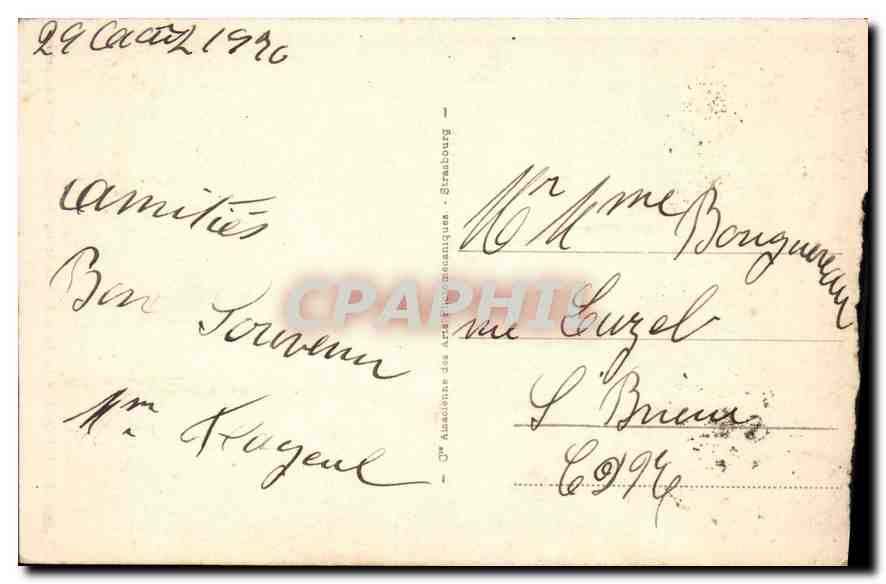 29 août 19
Amitiés
Bon Souvenir
Mm
Cie Alsacienne des Arts Photomécaniques - Strasbourg
CPAPHIL
Mr Mme Bouguereau
rue Luzel
St Brieuc
CDN